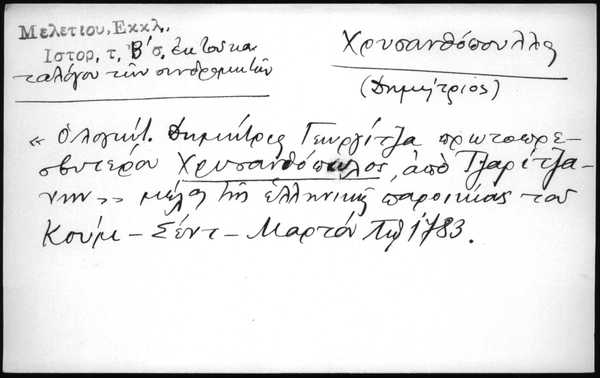 Μελετίου, Εκκλ.
Ιστορ, τ, Β´σ, ἐκ τοῦ κα
ταλόγου τῶν συνδρομητῶν
Χρυσανθόπουλλος
(Δημήτριος)
« Ὁ λογιώτ. Δημήτρις Γεωργίτζα πρωτοπρε-
σβυτέρου Χρυσανθόπουλος, ἀπὸ Τζαρίτζα-
νην » μέλος τῆς ἑλληνικῆς παροικίας τοῦ
Κούμ - Σέντ - Μαρτόν 1783.